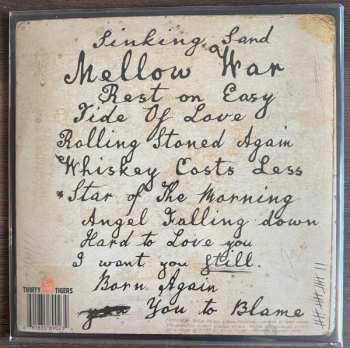 Sinking Sand
Mellow War
Rest on Easy
Tide Of Love
Rolling Stoned Again
Whiskey Costs Less
*Star of The Morning
Angel Falling down
Hard to Love you
I want you still.
Born Again
You to Blame
THIRTY TIGERS